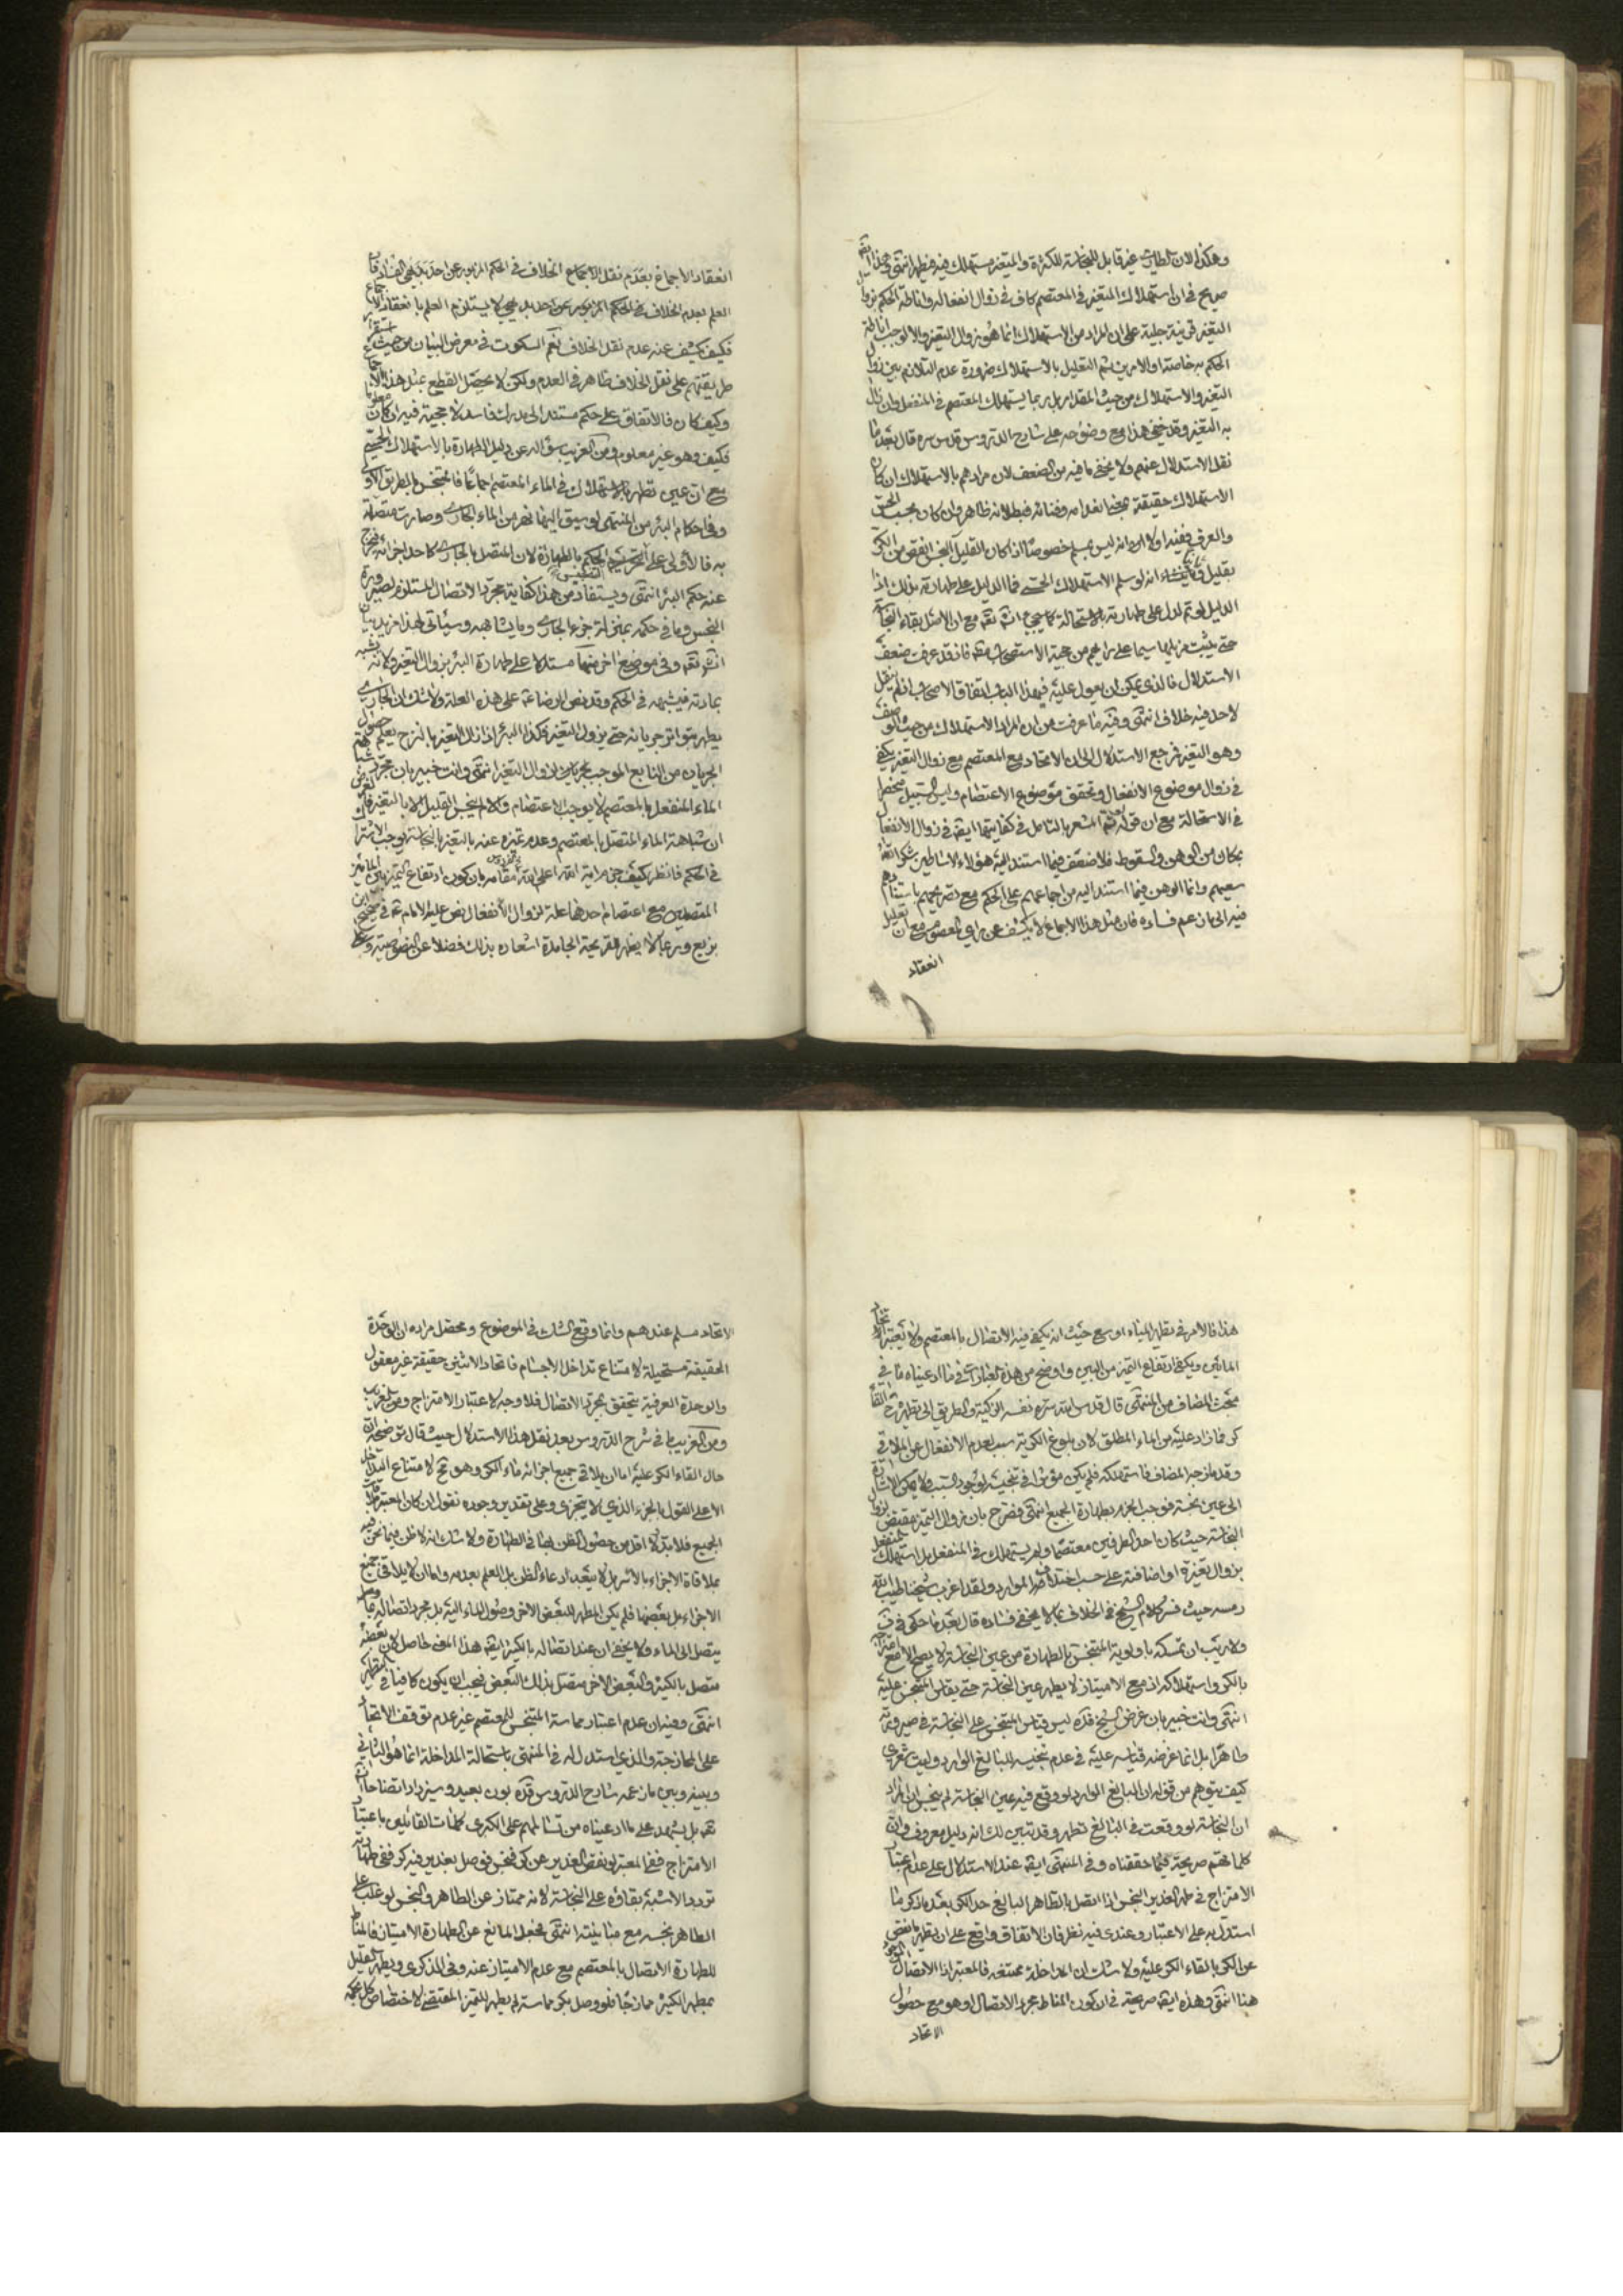 وهكذا لان الطاري غير قابل للنجاسة للكثرة والمتغير مستهلك فيه فيطهر انتهى وهذا ايضا
صريح في ان استهلاك المتغير في المعتصم كاف في زوال انفعاله واناطة الحكم بزوال
التغير قرينة جلية على ان المراد من الاستهلاك انما هو زوال التغير والا لوجب اناطة
الحكم به خاصة او الامرين ثم التعليل بالاستهلاك ضرورة عدم التلازم بين زوال
التغير والاستهلاك من حيث المقدار بل ربما يستهلك المعتصم في المنفعل وان زال
به التغير وقد خفي هذا مع وضوحه على شارح الدروس قدس سره قال بعد ما
نقل الاستدلال عنهم ولا يخفى ما فيه من الضعف لان مرادهم بالاستهلاك ان كان
الاستهلاك حقيقة بمعنى انعدامه وفنائه فبطلانه ظاهر وان كان بحسب الحس
والعرف ففيه اولا انه ليس بمسلم خصوصا اذا كان القليل النجس انقص من الكر
بقليل وثانيا انه لو سلم الاستهلاك الحسي فما الدليل على طهارته بذلك اذا
الدليل لو تم لدل على طهارته بالاستحالة كما سيجيء انشاء الله تعالى مع ان الاصل بقاء النجاسة
حتى يثبت مزيلها سيما على رايهم من حجية الاستصحاب مطلقا فاذ قد عرفت ضعف
الاستدلال فالذي يمكن ان يعول عليه في هذا الباب اتفاق الاصحاب اذ لم ينقل
لاحد فيه خلاف انتهى وفيه ما عرفت من ان المراد الاستهلاك من حيث الوصف
وهو التغير فرجع الاستدلال الى ان الاتحاد مع المعتصم مع زوال التغير يكفي
في زوال موضوع الانفعال وتحقق موضوع الاعتصام وليس السبيل منحصرا
في الاستحالة مع ان قوله ثم المشعر بالتامل في كفايتها ايضا في زوال الانفعال
بمكان من الوهن والسقوط فلا ضعف فيما استند اليه هؤلاء الاساطين شكر الله
سعيهم وانما الوهن فيما استند اليه من اجماعهم على الحكم مع تصريحهم باستنادهم
فيه الى ما زعم فساده فان مثل هذا الاجماع لا يكشف عن راي المعصوم مع ان تعليل
انعقاد
انعقاد الاجماع بعدم نقل الاجماع الخلاف في الحكم المزبور عن احد بديهي الفساد فان
العلم بعدم الخلاف في الحكم المزبور عن احد بديهي لا يستلزم العلم بانعقاد الاجماع
فكيف يكشف عنه عدم نقل الخلاف نعم السكوت في معرض البيان من حيث استقراء
طريقتهم على نقل الخلاف ظاهر في العدم ولكن لا يحصل القطع بمثل هذا الاجماع
وكيف كان فالاتفاق على حكم مستند الى مدرك فاسد لا حجية فيه ان كان معلوما
فكيف وهو غير معلوم ومن الغريب سؤاله عن دليل الطهارة بالاستهلاك الحسي
مع ان عين تطهر بالاستهلاك في الماء المعتصم اجماعا فالمتنجس بالطريق الاولى
وفي احكام البئر من المنتهى لو سيق اليها نهر من الماء الجاري وصارت متصلة
به فالاولى على التخريج الحكم بالطهارة لان المتصل بالجاري كاحد اجزائه فخرج
عنه حكم البئر انتهى ويستفاد من هذا كفاية مجرد الاتصال المستلزم لصيرورة
النجس وما في حكمه بمنزلة جزء الجاري وما يشابهه وسيأتي لهذا مزيد بيان
انشاء الله تعالى وفي موضع اخر منها مستدلا على طهارة البئر بزوال التغير ولانه
بمادته فيشبهه في الحكم وقد نص الرضا على هذه العلة ولا شك ان الجاري
يطهر بتواتر جريانه حتى يزول التغير فكذا البئر اذا زال التغير بالنزح يعلم حصول
الجريان من النابع الموجب بجريانه لزوال التغير انتهى وانت خبير بان مجرد شباهة
الماء المنفعل بالمعتصم لا يوجب الاعتصام والا لم ينجس القليل الا بالتغير
ان شباهة الماء المتصل بالمعتصم وعدم تميزه عنه بالتغير بالنجاسة يوجب الاشتراك
في الحكم فانظر كيف جزم اية الله اعلى الله مقامه بان كون ارتفاع التميز بين المائين
المتصلين مع اعتصام احدهما علة لزوال الانفعال نص عليه الامام في صحيحة ابن
بزيع وربما لا يظهر لقريحة الجامدة اشعاره بذلك فضلا عن النصوصية وعلى
هذا فالامر في تطهير المياه اوسع حيث انه يكفي فيه الاتصال بالمعتصم ولا يعتبر اتحاد
المائين ويكفي ارتفاع التميز من البين واوضح من هذه العبارات في ما ادعيناه ما في
مبحث المضاف من المنتهى قال قدس الله سره نفسه الزكية والطريق الى تطهيره القاء
كر فما زاد عليه من الماء المطلق لان بلوغ الكرية سبب لعدم الانفعال عن الملاقي
وقد مازجه المضاف فاستهلكه فلم يكن مؤثرا في تنجيسه لوجود السبب ولا يمكن الاشارة
الى عين نجسة فوجب الجزم بطهارة الجميع انتهى فصرح بان زوال التميز مقتض لزوال
النجاسة حيث كان احد الطرفين معتصما ولم يستهلك في المنفعل بل استهلك المنفعل
بزوال تغيره او اضافته على حسب اختلاف الموارد ولقد اغرب شيخنا طيب الله
رمسه حيث فسر كلام الشيخ في الخلاف بما لا يخفى فساده قال بعد ما حكى
ولا ريب ان تمسكه باولوية المتنجس بالطهارة من عين النجاسة لا يصح الا مع امتزاجه
بالكر واستهلاكه اذ مع الامتياز لا يطهر عين النجاسة حتى يقاس المتنجس عليه
انتهى وانت خبير بان غرض الشيخ قده ليس قياس المتنجس على النجاسة في صيرورته
طاهرا بل انما غرضه قياسه عليه في عدم تنجيسه للبالغ الوارد وليت شعري
كيف يتوهم من قوله ان البالغ الوارد لو وقع فيه عين النجاسة لم ينجس ان المراد
ان النجاسة لو وقعت في البالغ تطهر وقد تبين لك انه دليل معروف وان
كلماتهم صريحة فيما حققناه وفي المنتهى ايضا عند الاستدلال على عدم اعتبار
الامتزاج في طهر الغدير النجس اذا اتصل بالطاهر البالغ حد الكر بعد ما ذكر ما
استدل به على الاعتبار وعندي فيه نظر فان الاتفاق واقع على ان تطهير ما نقص
عن الكر بالقاء الكر عليه ولا شك ان المداخلة ممتنعة فالمعتبر اذا الاتصال الموجود
هنا انتهى وهذه ايضا صريحة في ان كون المناط مجرد الاتصال او هو مع حصول
الاتحاد
الاتحاد مسلم عندهم وانما وقع الشك في الموضوع ومحصل مراده ان الوحدة
الحقيقية مستحيلة لامتناع تداخل الاجسام فاتحاد الاثنين حقيقة غير معقول
والوحدة العرفية يتحقق بمجرد الاتصال فلا وجه لاعتبار الامتزاج
ومن الغريب ما في شرح الدروس بعد نقل هذا الاستدلال حيث قال توضيحه ان
حال القاء الكر عليه اما ان يلاقي جميع اجزائه ماء الكر وهو مح لامتناع التداخل
الا على القول بالجزء الذي لا يتجزى وعلى تقدير وجوده نقول ان كان المعتبر ملاقات
الجميع فلا بد لا اقل من حصول الظن بها في الطهارة ولا شك انه لا ظن فيما نحن فيه
بملاقاة الاجزاء بالاسر بل لا يبعد ادعاء الظن بل العلم بعدمه واما ان لا يلاقي جميع
الاجزاء بل بعضها فلم يكن المطهر للبعض الاخر وصول الماء اليه بل مجرد اتصاله بما
يتصل الى الماء ولا يخفى ان عند اتصاله بالكثير ايضا هذا المعنى حاصل لان بعضه
متصل بالكثير والبعض الاخر متصل بذلك البعض فيجب ان يكون كافيا في التطهير
انتهى وفيه ان عدم اعتبار مماسة المتنجس للمعتصم غير عدم توقف الاتحاد
على الممازجة والذي استدل له في المنتهى باستحالة المداخلة انما هو الثاني
وبينه وبين ما زعمه شارح الدروس قده بون بعيد وسيزداد اتضاحا ان
بل يشهد على ما ادعيناه من تسالمهم على الكبرى كلمات القائلين باعتبار
الامتزاج ففي المعتبر لو نقص الغدير عن كر فنجس فوصل بغدير فيه كر ففي طهارته
تردد الاشبه بقاؤه على النجاسة لانه ممتاز عن الطاهر والنجس لو غلب على
الطاهر نجسه مع مباينته انتهى فجعل المانع عن الطهارة الامتياز فالمناط
للطهارة الاتصال بالمعتصم مع عدم الامتياز عنه وفي الذكرى ويطهر القليل
بمطهر الكثير ممازجا فلو وصل بكر مماسة لم يطهر للتميز المقتضي لاختصاص كل بحكمه